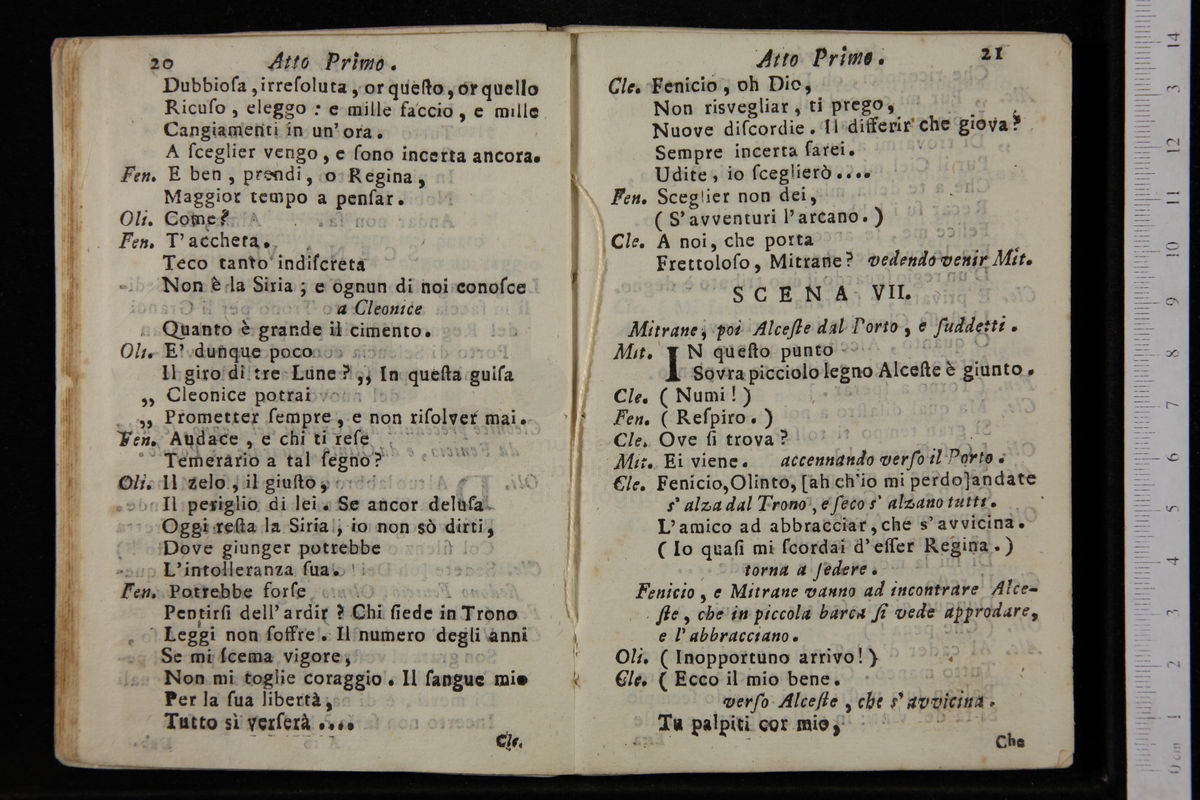 20 Atto Primo.
Dubbioſa, irreſoluta, or queſto, or quello
Ricuſo, eleggo: e mille faccio, e mille
Cangiamenti in un' ora.
A ſceglier vengo, e ſono incerta ancora.
Fen. E ben, prendi, o Regina,
Maggior tempo a penſar.
Oli. Come?
Fen. T' accheta.
Teco tanto indiſcreta
Non è la Siria; e ognun di noi conoſce
a Cleonice
Quanto è grande il cimento.
Oli. E' dunque poco
Il giro di tre Lune? ,, In queſta guiſa
,, Cleonice potrai
,, Prometter ſempre, e non riſolver mai.
Fen. Audace, e chi ti reſe
Temerario a tal ſegno?
Oli. Il zelo, il giuſto,
Il periglio di lei. Se ancor deluſa
Oggi reſta la Siria, io non sò dirti,
Dove giunger potrebbe
L'intolleranza ſua.
Fen. Potrebbe forſe
Pentirſi dell' ardir? Chi ſiede in Trono
Leggi non ſoffre. Il numero degli anni
Se mi ſcema vigore,
Non mi toglie coraggio. Il ſangue mio
Per la ſua libertà,
Tutto si verſerà ....
Cle.
Atto Primo. 21
Cle. Fenicio, oh Dio,
Non risvegliar, ti prego,
Nuove diſcordie. Il differir che giova?
Sempre incerta ſarei.
Udite, io ſceglierò ....
Fen. Sceglier non dei,
( S' avventuri l' arcano. )
Cle. A noi, che porta
Frettoloſo, Mitrane? vedendo venir Mit.
SCENA VII.
Mitrane, poi Alceſte dal Porto, e ſuddetti.
Mit. IN queſto punto
Sovra picciolo legno Alceſte è giunto.
Cle. ( Numi! )
Fen. ( Reſpiro. )
Cle. Ove ſi trova?
Mit. Ei viene. accennando verſo il Porto.
Cle. Fenicio, Olinto, [ah ch'io mi perdo] andate
s' alza dal Trono, e ſeco s' alzano tutti.
L'amico ad abbracciar, che s' avvicina.
( Io quaſi mi ſcordai d' eſſer Regina. )
torna a ſedere.
Fenicio, e Mitrane vanno ad incontrare Alce-
ſte, che in piccola barca ſi vede approdare,
e l' abbracciano.
Oli. ( Inopportuno arrivo! )
Cle. ( Ecco il mio bene.
verſo Alceſte, che s' avvicina.
Tu palpiti cor mio,
Che
14
13
12
11
10
9
8
7
6
5
4
3
2
1
0 cm